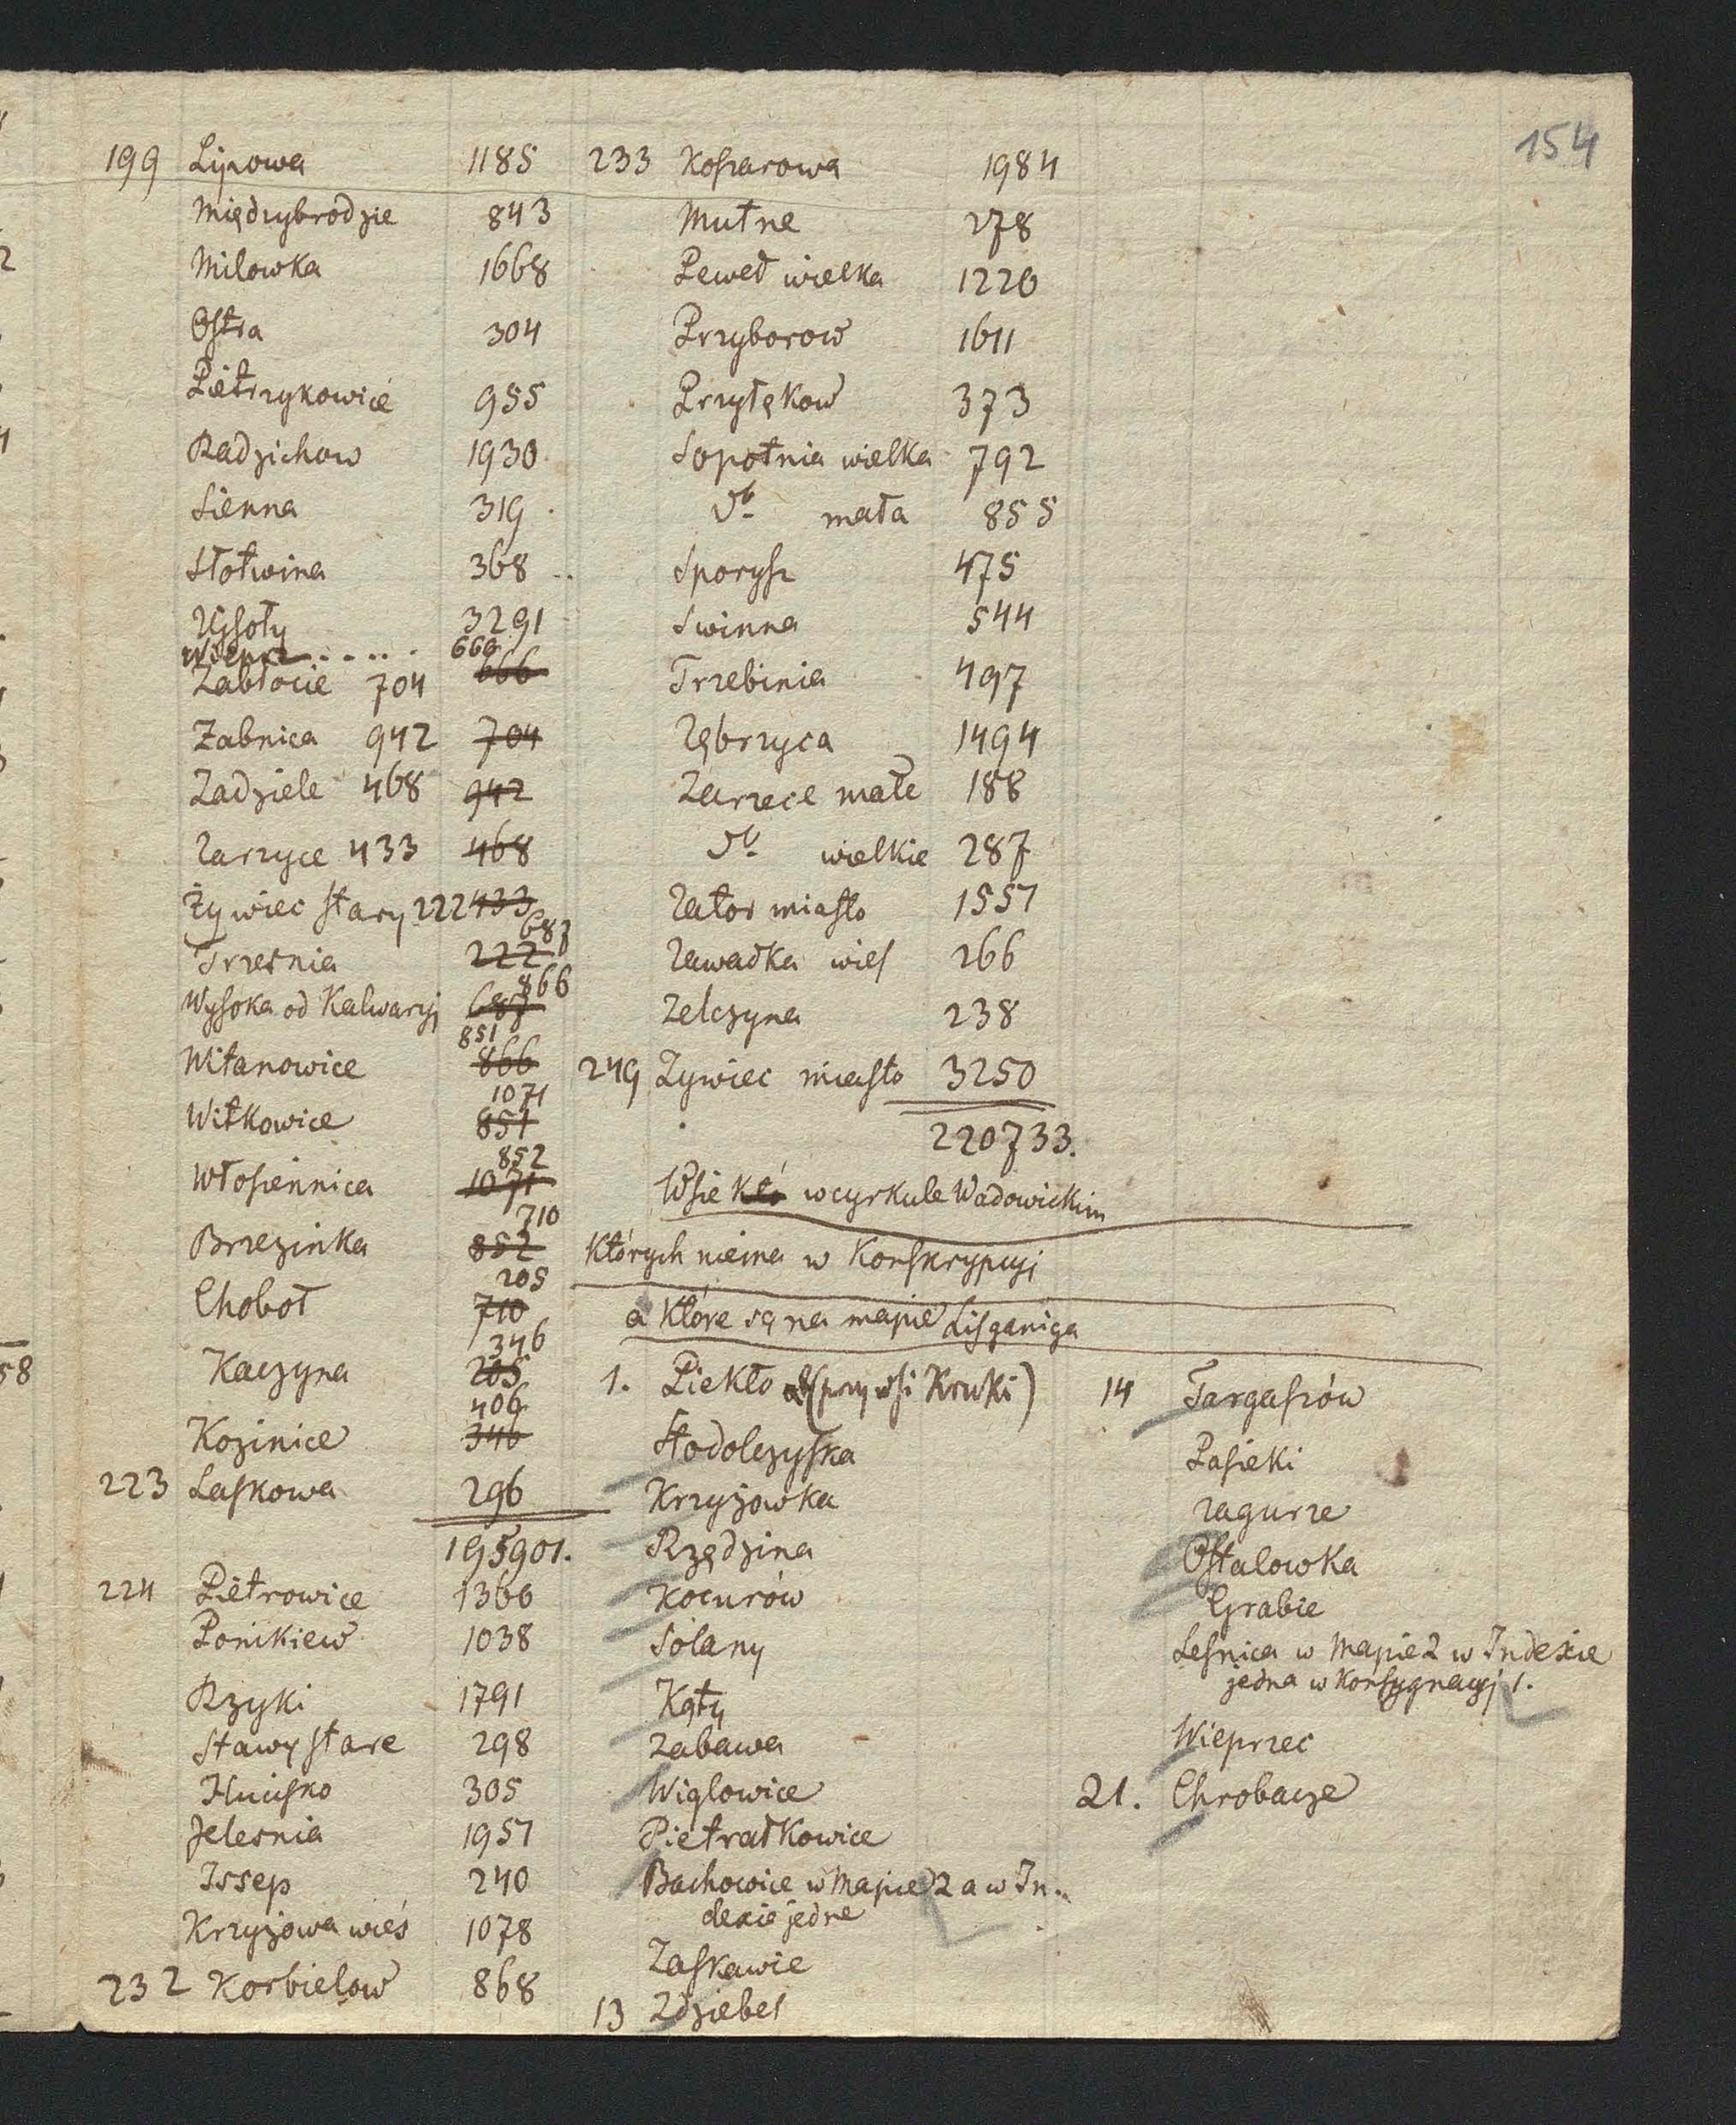 154
199 Lipowa 1185
Międzybrodzie 843
Milowka 1668
Ostra 304
Pietrzykowice 955
Radzichow 1930
Sienna 319
Słotwina 368
Ujsoły 3291
Wieprz 669 666
Zabłocie 704
Zabnica 942 704
Zadziele 468 942
Zarzyce 433 468
Żywiec stary 222 433
Trzesnia 222 687
Wysoka od Kalwaryj 687 866
Witanowice 866 851
Witkowice 851 1071
Włosiennica 1071 852
Brzezinka 852 710
Chobot 710 205
Kaczyna 205 346
Kozinice 346 406
223 Laskowa 296
195901.
224 Pietrowice 1366
Ponikiew 1038
Rzyki 1791
Stawy stare 298
Hucisko 305
Jelesnia 1957
Issep 240
Krzyżowa wieś 1078
232 Korbielow 868
233 Koszarowa 1984
Mutne 278
Pewel wielka 1220
Przyborow 1611
Przyłękow 373
Sopotnia wielka 792
do mała 855
Sporysz 475
Swinna 544
Trzebinia 497
Zębrzyca 1494
Zarzece małe 188
do wielkie 287
Zator miasto 1557
Zawadka wieś 266
Zelczyna 238
249 Zywiec miasto 3250
220733.
Wsie w cyrkule Wadowickim
Których niema w Konskrypcyi
a które są na mapie Lisganiga
1. Piekło (przy wsi Kruki)
Stodolczyska
Krzyżowka
Rzędzina
Kocurów
Solany
Kąty
Zabawa
Wiglowice
Pietrałkowice
Bachowice w Mapie 2 a w In-
dexie jedne
Zaskawie
13 Zdziebel
14 Targaszów
Pasieki
Zagurze
Ostalowka
Grabie
Lesnica w Mapie 2 w Indexie
jedna w Konsygnacyj 1.
Wieprzec
21. Chrobacze